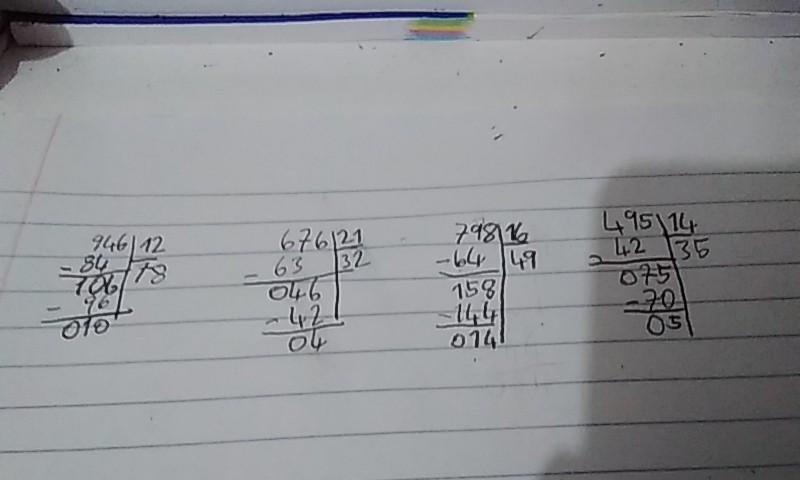 946 12
-84 78
106
- 96
010
676 21
- 63 32
046
- 42
04
798 16
-64 49
158
-144
014
495 14
- 42 35
075
-70
05